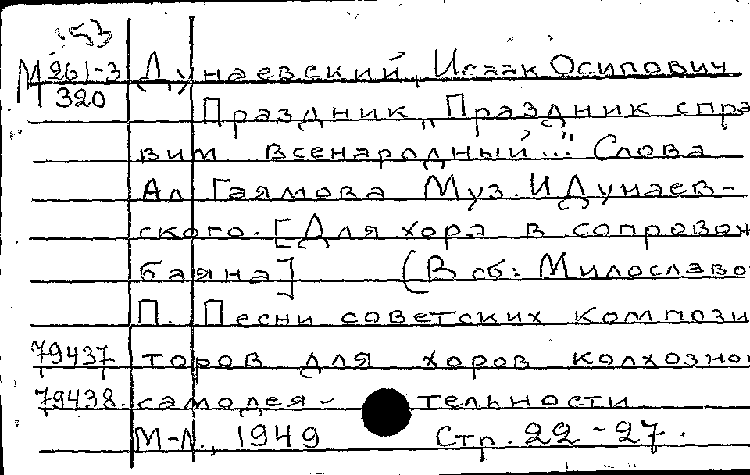 53
М 261-3 Дунаевский, Исаак Осипович
320 Праздник „Праздник спра
вим всенародный..." Слова
Ал Гаямова Муз. И Дунаев-
ского. [Для хора в сопровож
баяна] (В сб: Милославо
П. Песни советских компози
79437 торов для хоров колхозной
79438 самодея- тельности
М-Л., 1949 Стр. 22-27.